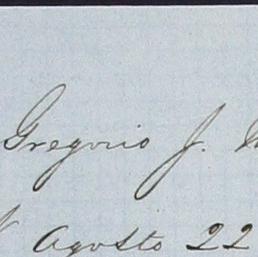 Gregorio J.
Agosto 22